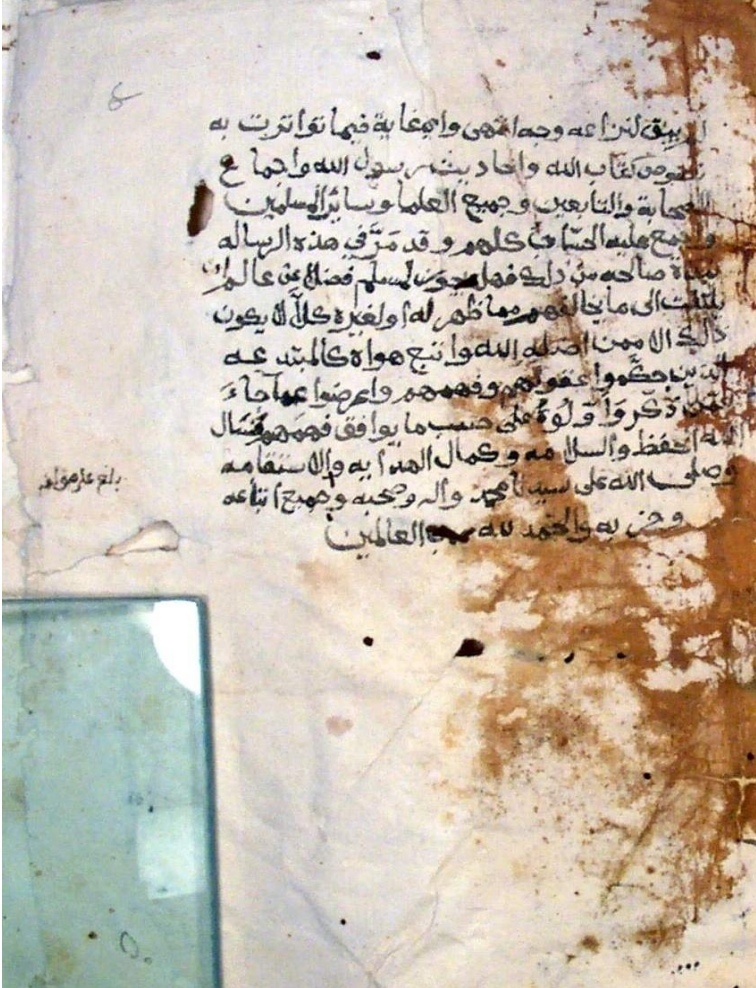 لم يبق لنزاعه وجه انتهى واي غاية فيما تواترت به
نصوص كتاب الله واحاديث رسول الله واجماع
الصحابة والتابعين وجميع العلما وسائر المسلمين
واجمع عليه الحساب كلهم وقد مَرَّ في هذه الرساله
نبذة صالحه من ذلك فهل يجوز لمسلم فضلا عن عالم ان
يلتفت الى ما يخالفهم مما ظهر له او لغيره كلاَّ لا يكون
ذالك الا ممن اضله الله واتبع هواه كالمبتدعه
الذين حكَّموا عقولهم وفهمهم واعرضوا عما جاءَ
على حسب ما يوافق فهمهم فنسال
الله الحفظ والسلامه وكمال الهدايه والاستقامه
وصلى الله على سيدنا محمد واله وصحبه وجميع اتباعه
وحزبه والحمد لله رب العالمين
بلغ